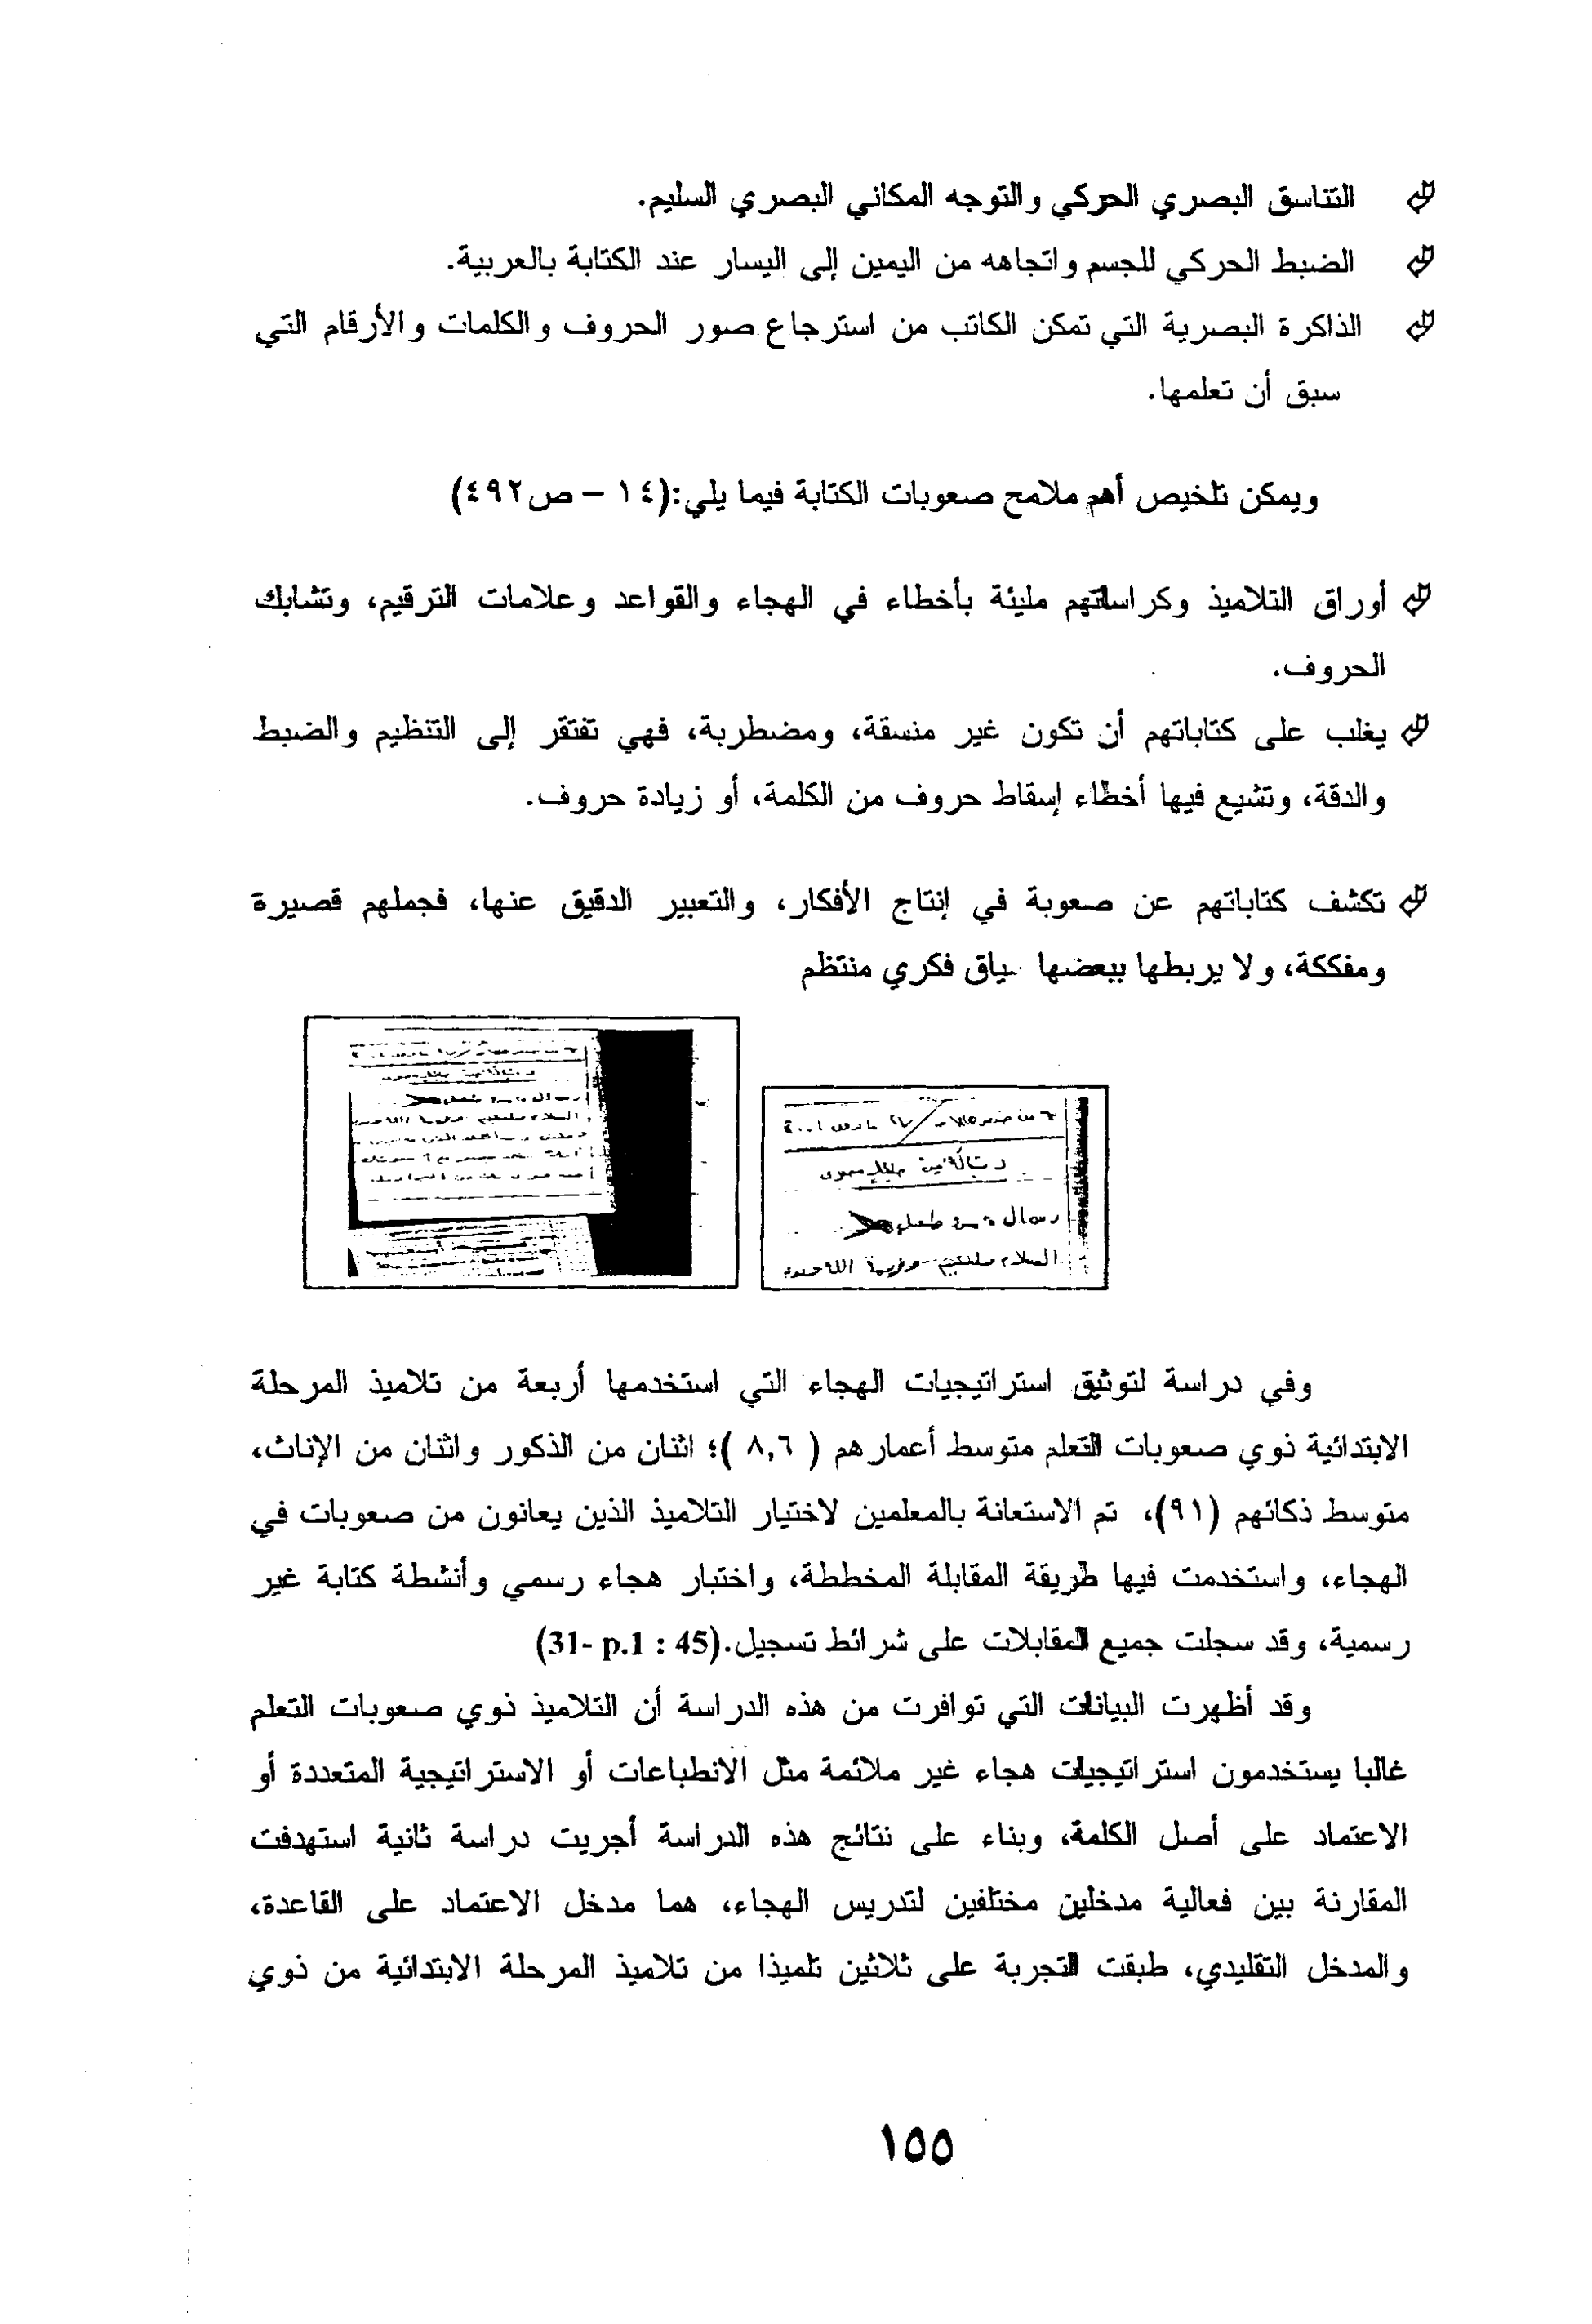 التناسق البصري الحركي والتوجه المكاني البصري السليم.
الضبط الحركي للجسم واتجاهه من اليمين إلى اليسار عند الكتابة بالعربية.
الذاكرة البصرية التي تمكن الكاتب من استرجاع صور الحروف والكلمات والأرقام التي
سبق أن تعلمها.
ويمكن تلخيص أهم ملامح صعوبات الكتابة فيما يلي:(١٤ – ص٤٩٢)
أوراق التلاميذ وكراساتهم مليئة بأخطاء في الهجاء والقواعد وعلامات الترقيم، وتشابك
الحروف.
يغلب على كتاباتهم أن تكون غير منسقة، ومضطربة، فهي تفتقر إلى التنظيم والضبط
والدقة، وتشيع فيها أخطاء إسقاط حروف من الكلمة، أو زيادة حروف.
تكشف كتاباتهم عن صعوبة في إنتاج الأفكار، والتعبير الدقيق عنها، فجملهم قصيرة
ومفككة، ولا يربطها ببعضها سياق فكري منتظم
وفي دراسة لتوثيق استراتيجيات الهجاء التي استخدمها أربعة من تلاميذ المرحلة
الابتدائية ذوي صعوبات التعلم متوسط أعمارهم ( ٨,٦ )؛ اثنان من الذكور واثنان من الإناث،
متوسط ذكائهم (٩١)، تم الاستعانة بالمعلمين لاختيار التلاميذ الذين يعانون من صعوبات في
الهجاء، واستخدمت فيها طريقة المقابلة المخططة، واختبار هجاء رسمي وأنشطة كتابة غير
رسمية، وقد سجلت جميع المقابلات على شرائط تسجيل.(31- p.1 : 45)
وقد أظهرت البيانات التي توافرت من هذه الدراسة أن التلاميذ ذوي صعوبات التعلم
غالبا يستخدمون استراتيجيات هجاء غير ملائمة مثل الانطباعات أو الاستراتيجية المتعددة أو
الاعتماد على أصل الكلمة، وبناء على نتائج هذه الدراسة أجريت دراسة ثانية استهدفت
المقارنة بين فعالية مدخلين مختلفين لتدريس الهجاء، هما مدخل الاعتماد على القاعدة،
والمدخل التقليدي، طبقت التجربة على ثلاثين تلميذا من تلاميذ المرحلة الابتدائية من ذوي
١٥٥